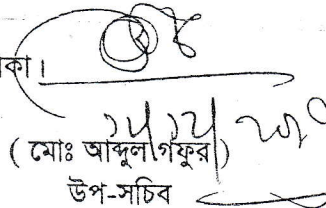 কা।
( মোঃ আব্দুল গফুর )
উপ-সচিব